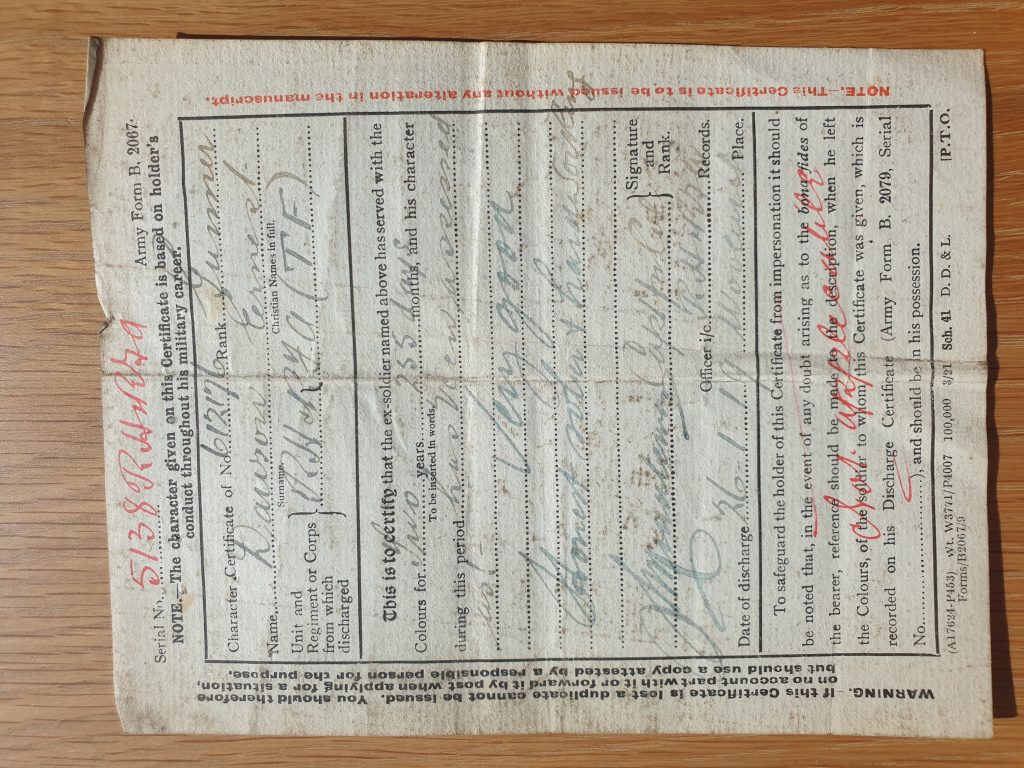 Serial No. 5138 RHA RFA
Army Form B. 2067.
NOTE.—The character given on this Certificate is based on holder's
conduct throughout his military career.
Character Certificate of No. 612146 Rank Gunner
Name Dawson Ernest
Surname. Christian Names in full.
Unit and
Regiment or Corps
from which
discharged
(TF)
This is to certify that the ex-soldier named above has served with the
Colours for two years 255 days months, and his character
To be inserted in words.
during this period
Very good
Honest
Signature
and
Rank.
Officer i/c. Records.
Date of discharge 26.1.19 Place.
To safeguard the holder of this Certificate from impersonation it should
be noted that, in the event of any doubt arising as to the bonafides of
the bearer, reference should be made to the description, when he left
the Colours, of the soldier to whom this Certificate was given, which is
recorded on his Discharge Certificate (Army Form B. 2079, Serial
No. ), and should be in his possession.
(A17624-P453) Wt. W3771/P4007 100,000 3/21 Sch. 41 D. D. & L. [P.T.O.
Forms/B2067/9
WARNING.—If this Certificate is lost a duplicate cannot be issued. You should therefore
on no account part with it or forward it by post when applying for a situation,
but should use a copy attested by a responsible person for the purpose.
NOTE.—This Certificate is to be issued without any alteration in the manuscript.